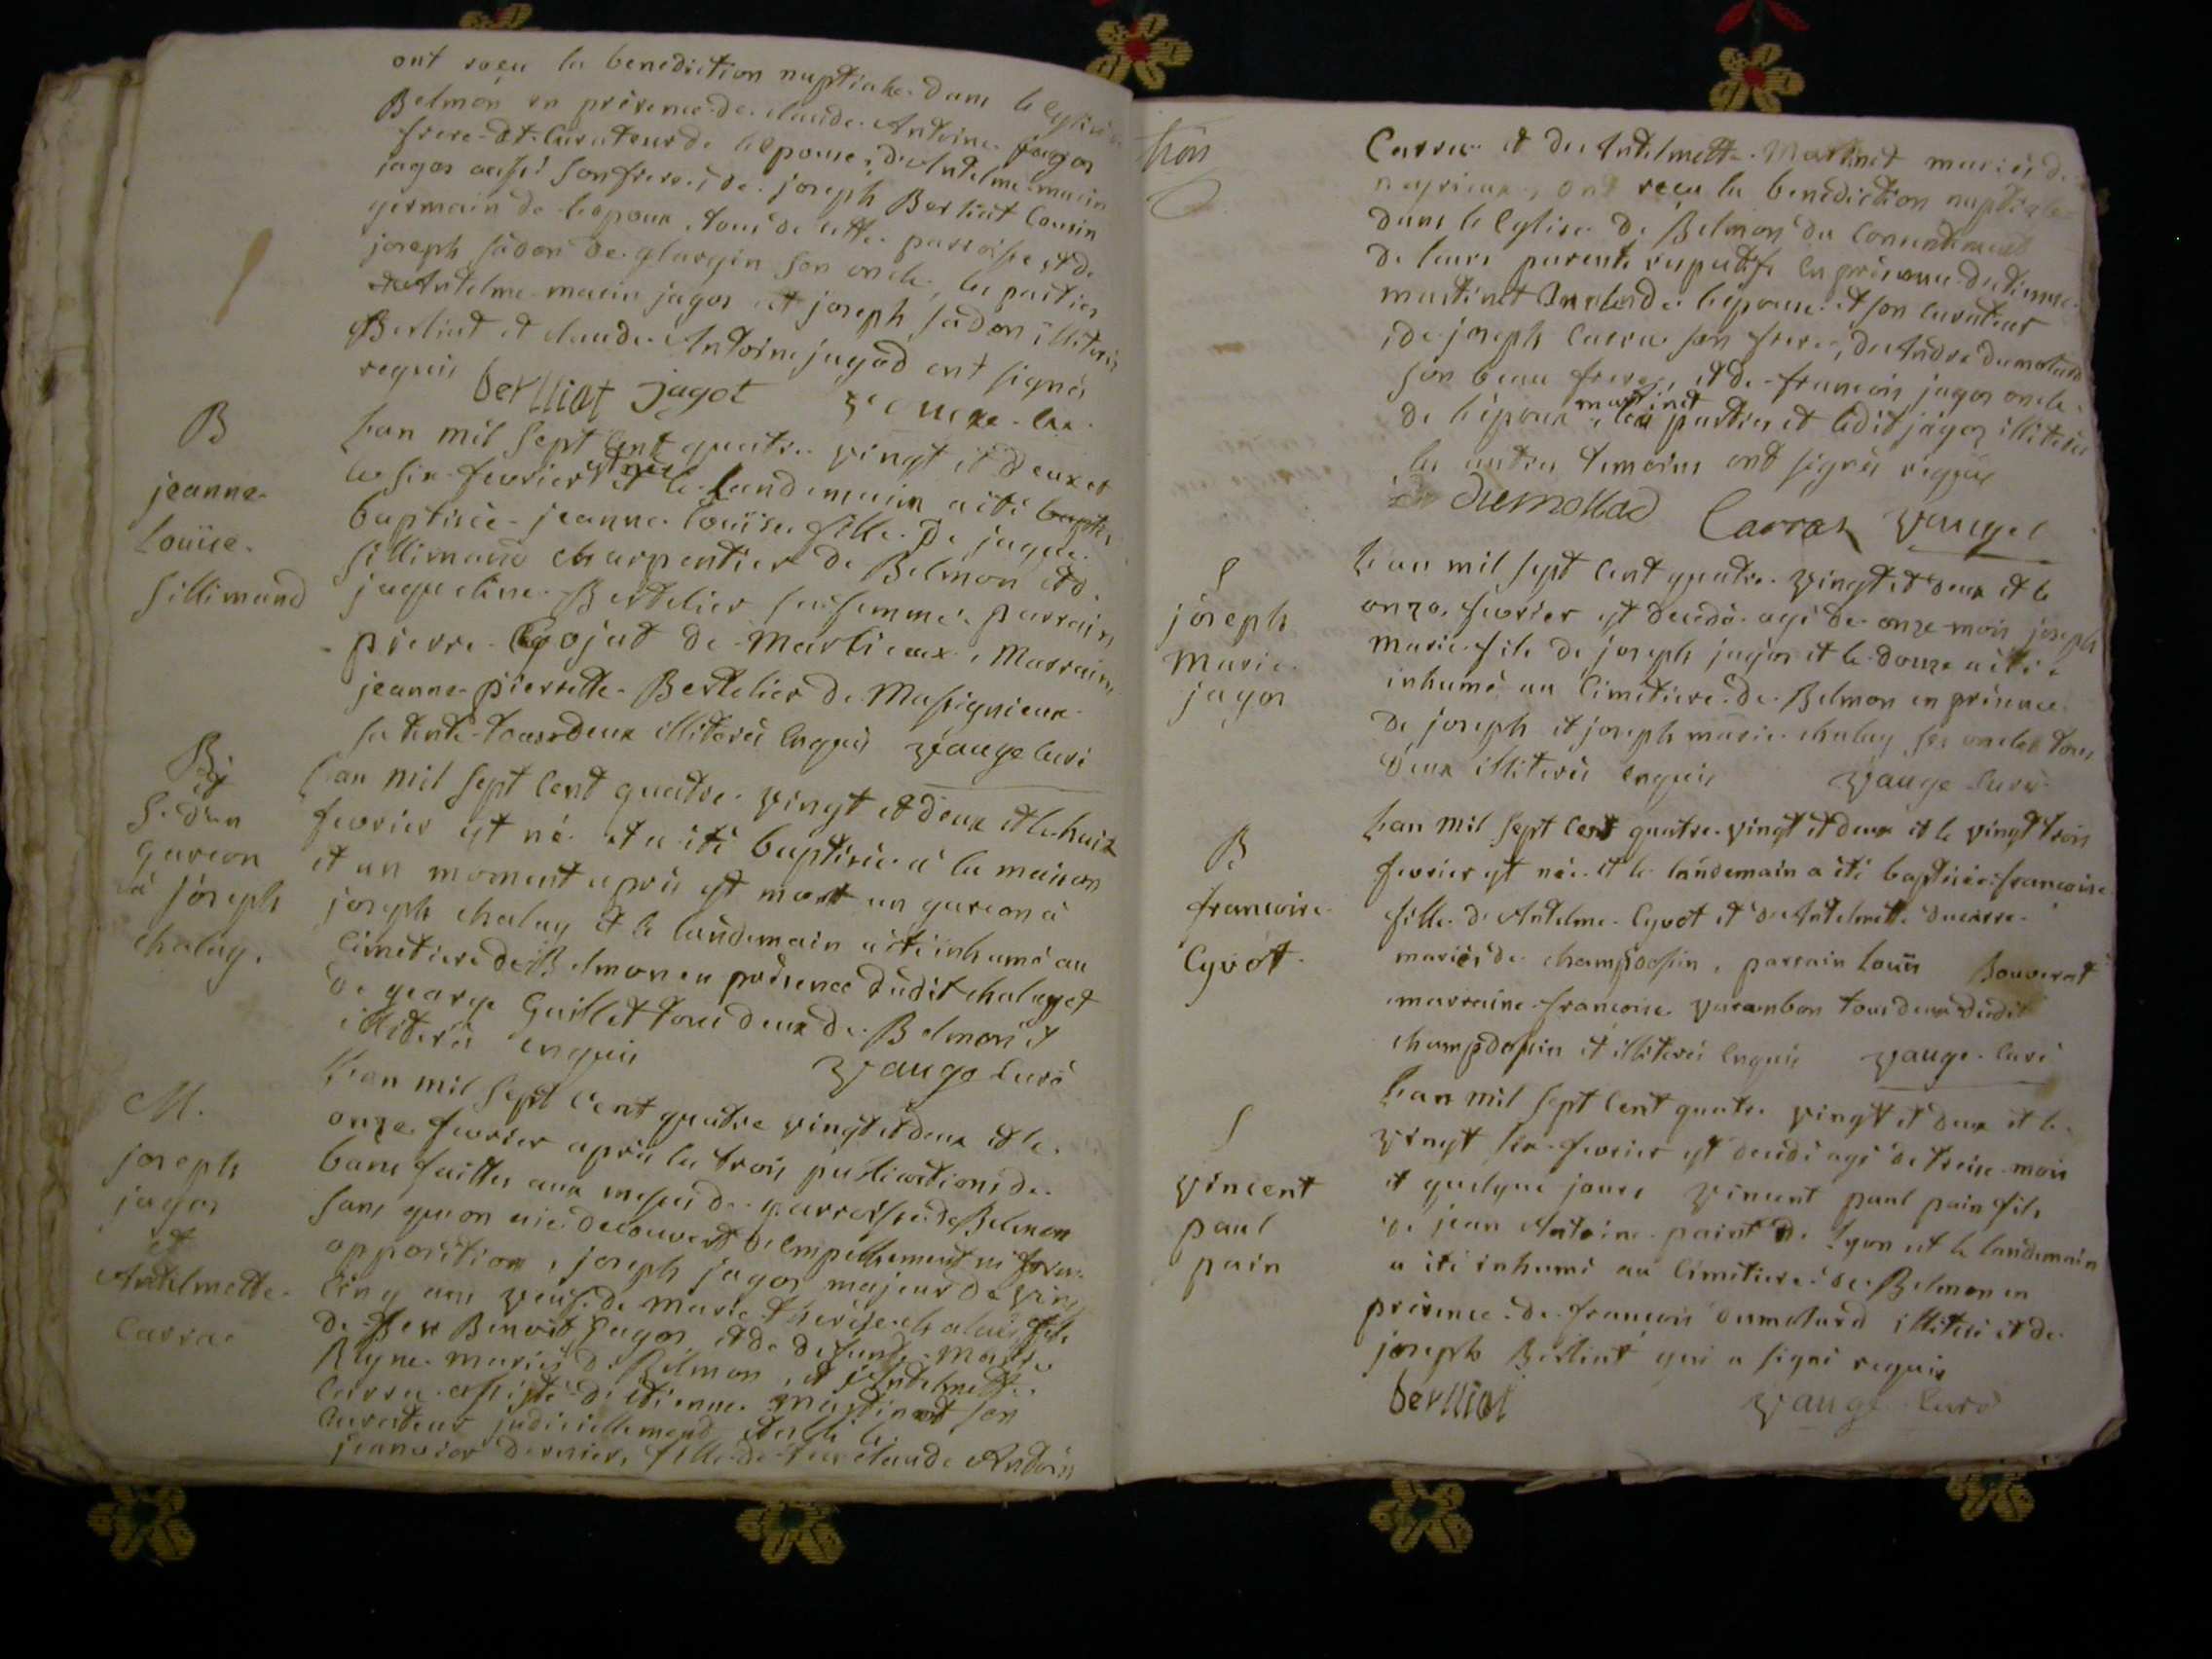 ont reçu la benediction nuptiale dans l'eglise de
Belmon en présence de claude Antoine jagos
frere et curateur de l'epouse, d'Antelme marin
jagos aussi son frere, de joseph Berliat cousin
germain de l'epoux, tous de cette parroisse et de
joseph de son oncle, les parties
Antelme marin jagos et joseph illiteres
Berliat et claude Antoine jagod ont signés
requis berlliat jagot
B
jeanne
Louïse
Sillimand
L'an mil sept cent quatre vingt et deux et
le six fevrier est née et le landemain a été
baptisée jeanne Louïse fille de jaque
Sillimand charpentier de Belmon et de
jaqueline Bertelier sa femme, parrain
pierre de Marlieux, Marraine
jeanne pierrette Bertelier de Massignieux
sa tente tous deux illiterés enquis vauge curé
garcon
à joseph
chaluy.
L'an mil sept cent quatre vingt et deux et le huit
fevrier est né et a été baptisé à la maison
et un moment après est mort un garcon à
joseph chaluy et le landemain a été inhumé au
cimetiere de Belmon en présence dudit chaluy et
de george Guillet tous deux de Belmon et
illiterés enquis vauge curé
M.
joseph
jagos
et
Antelmette
Carra
L'an mil sept cent quatre vingt et deux et le
onze fevrier après les trois publications de
bans faittes aux messes de parroisse de Belmon
sans qu'on aie decouvert d'empechement ni
opposition, joseph jagos majeur de vingt
cinq ans veuf de marie therese chaluy fils
de feu Benoit jagos et de defunte
Reyne mariés de Belmon, et d'Antelmette
Carra assisté d'etienne martinet son
curateur judiciellement
janvier dernier, fille de feu claude Antoine
Carra et de Antelmette Martinet mariés de
ont reçu la benediction nuptiale
dans l'eglise de Belmon du consentement
de leurs parents respectifs en présence d'etienne
martinet oncle de l'epouse et son curateur
, de joseph Carra son frere, de Andre dumolard
son beau frere, et de francois jagos oncle
de l'epoux, martinet les parties et ledit jagos illiteres
les autres temoins ont signés requis
dumollad Carraz vauge
S
joseph
Marie
jagos
L'an mil sept cent quatre vingt et deux et le
onze fevrier est decédé agé de onze mois joseph
marie fils de joseph jagos et le douze a été
inhumé au cimetiere de Belmon en présence
de joseph et joseph marie chaluy ses oncles tous
deux illiterés enquis vauge curé
B
francoise
Cyvot
L'an mil sept cent quatre vingt et deux et le vingt trois
fevrier est née et le landemain a été baptisée francoise
fille d'Antelme Cyvot et d'Antelmette ducarre
mariés de champdossin, parrain Louis Bouverat
marraine francoise varambon tous deux dudit
champdossin et illiterés enquis vauge curé
S
vincent
paul
pain
L'an mil sept cent quatre vingt et deux et le
vingt six fevrier est decedé agé de treise mois
et quelque jours vincent paul pain fils
de jean Antoine paint de Lyon et le landemain
a été inhumé au cimetiere de Belmon en
présence de francois dumolard illiteré et de
joseph Berliat qui a signé requis
berlliat vauge curé